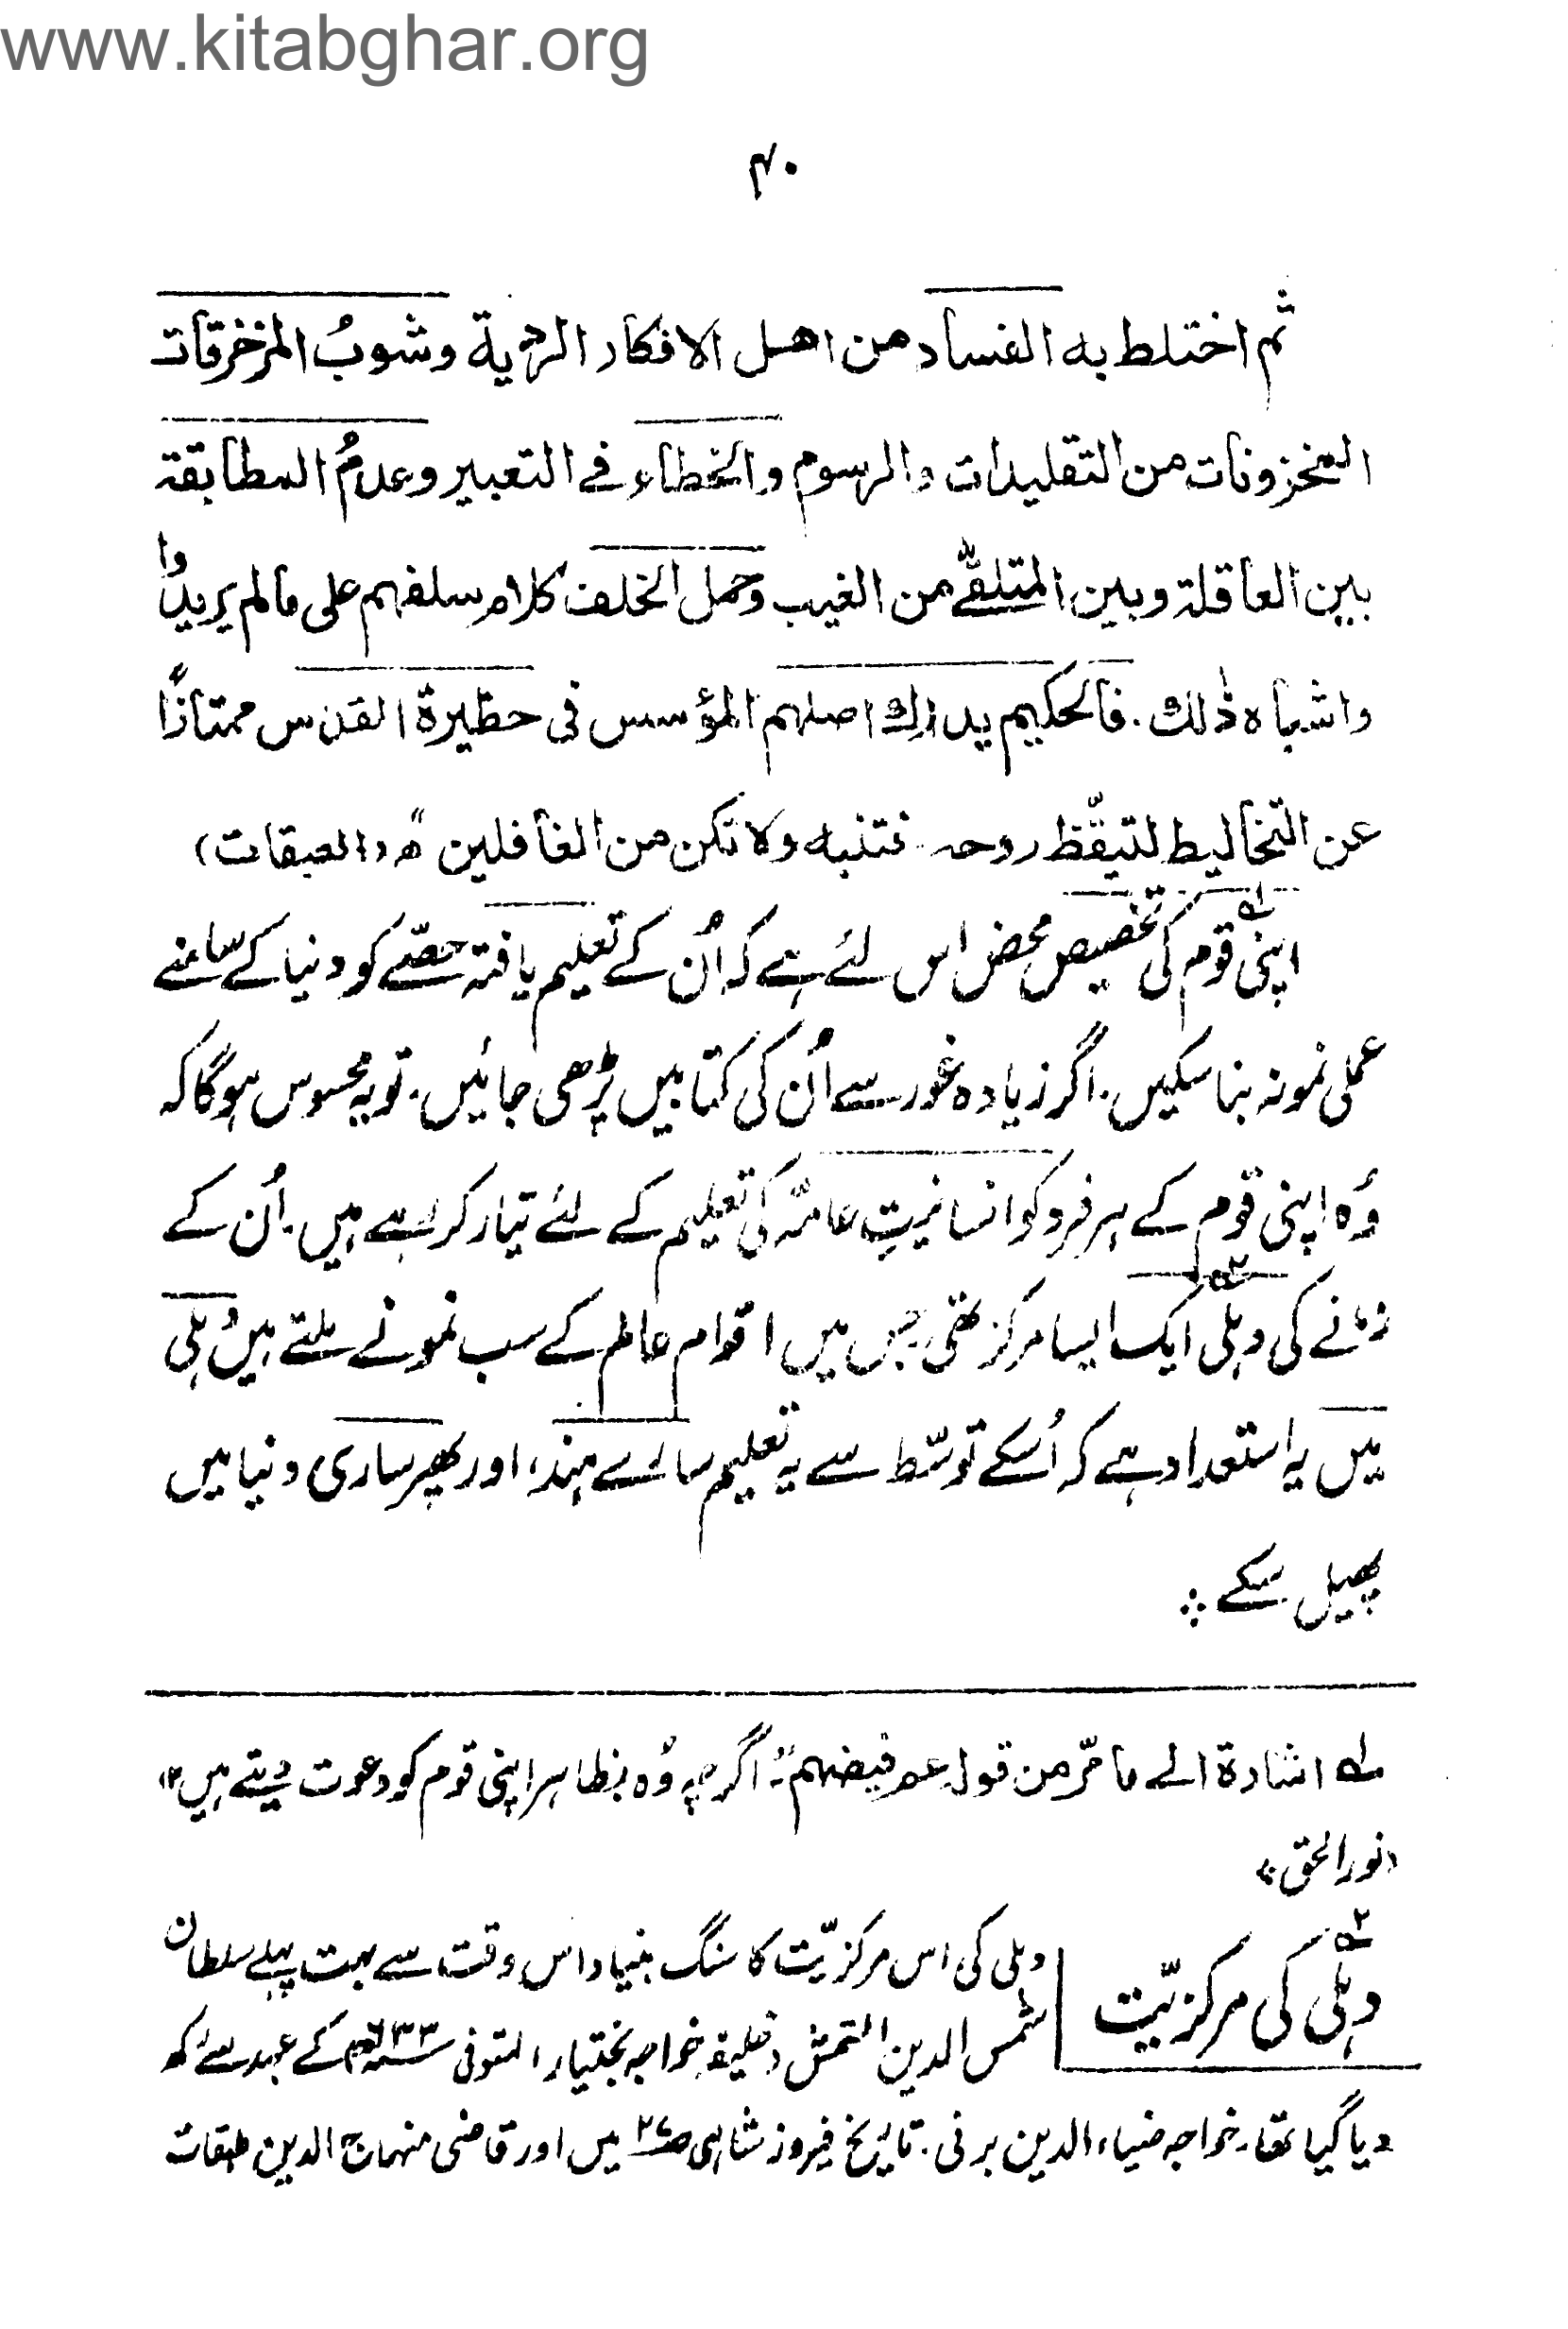 www.kitabghar.org
۴۰
ثم اختلط به الفساد من اهل الافكار الردية وشوبُ المزخرقات
المخزونات من التقليدات والرسوم والخطاء في التعبير وعدمُ المطابقة
بين العاقلة وبين المتلقّٰى من الغيب وحمل الخلف كلام سلفهم على مالم يريدوا
واشباه ذٰلك. فالحكيم يدرك اصلهم المؤسس فى حظيرة القدس ممتازًا
عن التخاليط لتيقّظ روحه. فتنبه ولا تكن من الغافلين" ھ (العبقات)
اپنی؎۱ قوم کی تخصیص محض اس لئے ہے کہ اُن کے تعلیم یافتہ حصّے کو دنیا کے سامنے
عملی نمونہ بنا سکیں. اگر زیادہ غور سے اُن کی کتابیں پڑھی جائیں. تو یہ محسوس ہوگا کہ
وُہ اپنی قوم کے ہر فرد کو انسانیتِ عامّہ کی تعلیم کے لئے تیار کر رہے ہیں. اُن کے
زمانے کی دہلی؎۲ ایک ایسا مرکز تھی جس میں اقوام عالم کے سب نمونے ملتے ہیں دہلی
میں یہ استعداد ہے کہ اُسکے توسّط سے یہ تعلیم سارے ہند، اور پھر ساری دنیا میں
پھیل سکے ∴
؎۱ اشارة الے مامرّ من قولہ عم فیضھم "اگرچہ وُہ بظاہر اپنی قوم کو دعوت دیتے ہیں ۱۲"
(نورالحق)
؎۲ دہلی کی مرکزیّت
دہلی کی اس مرکزیّت کا سنگ بنیاد اس وقت سے بہت پہلے سلطان
شمس الدین التمش (خلیفہ خواجہ بختیار) المتوفی ۶۳۳ھ کے عہد سے رکھ
دیا گیا تھا. خواجہ ضیاء الدین برنی. تاریخ فیروز شاہی ص۲۷ میں اور قاضی منہاج الدین طبقات